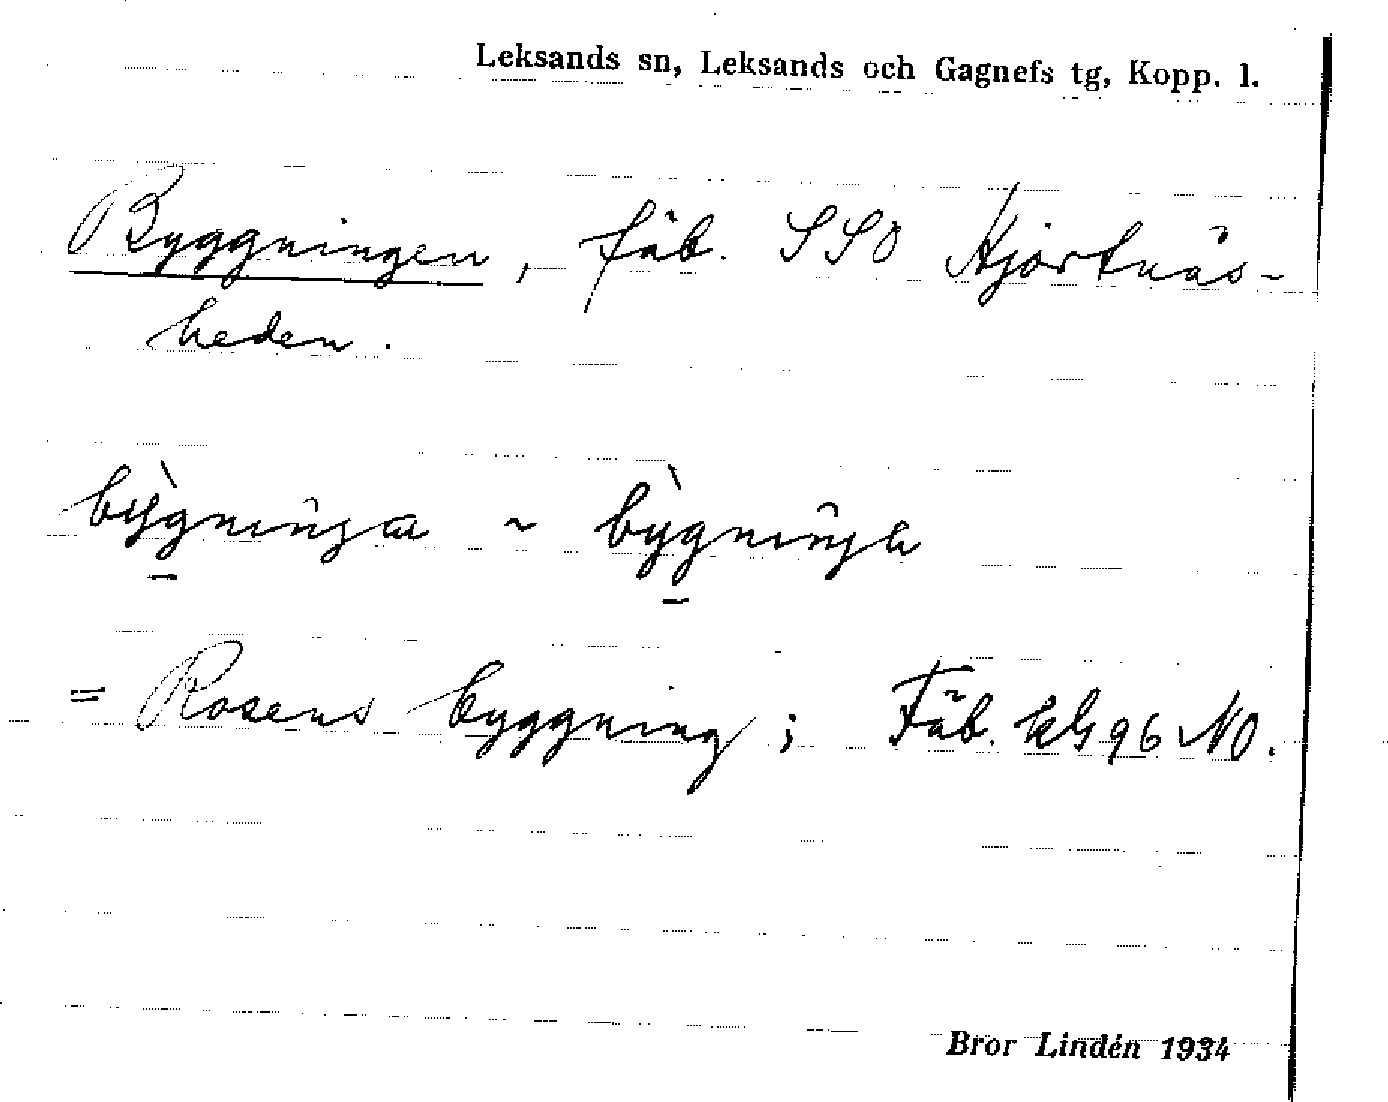 Leksands sn, Leksands och Gagnefs tg, Kopp. l.
Byggningen, fäb. SSO Hjortnäs-
heden.
= Rosens byggning; Fäb. kbl 96 NO.
Bror Lindén 1934